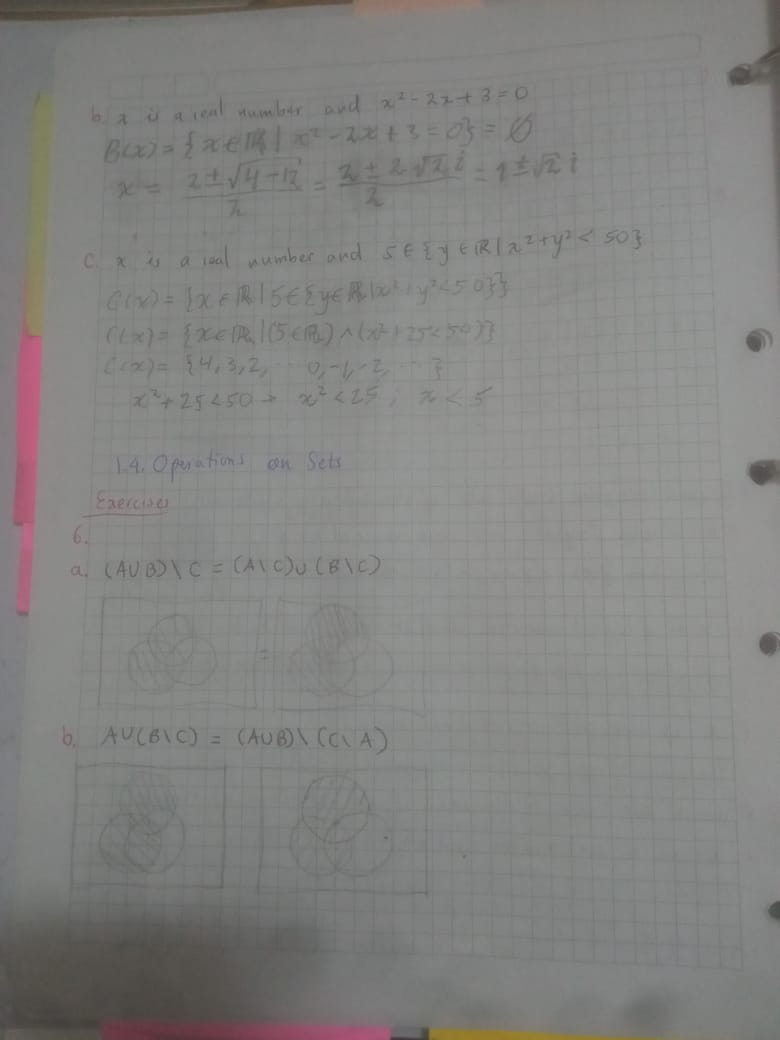 b. x is a real number and x² - 2x + 3 = 0
B(x) = {x ∈ ℝ | x² - 2x + 3 = 0} = ∅
x = (2 ± √(4 - 12))/2 = (2 ± 2√2 i)/2 = 1 ± √2 i
c. x is a real number and 5 ∈ {y ∈ ℝ | x² + y² < 50}
C(x) = {x ∈ ℝ | 5 ∈ {y ∈ ℝ | x² + y² < 50}}
C(x) = {x ∈ ℝ | (5 ∈ ℝ) ∧ (x² + 25 < 50)}
C(x) = {4, 3, 2, ... 0, -1, -2, ... }
x² + 25 < 50 → x² < 25; x < 5
1.4. Operations on Sets
Exercises
6.
a. (A∪B)\C = (A\C)∪(B\C)
=
b. A∪(B\C) = (A∪B)\(C\A)